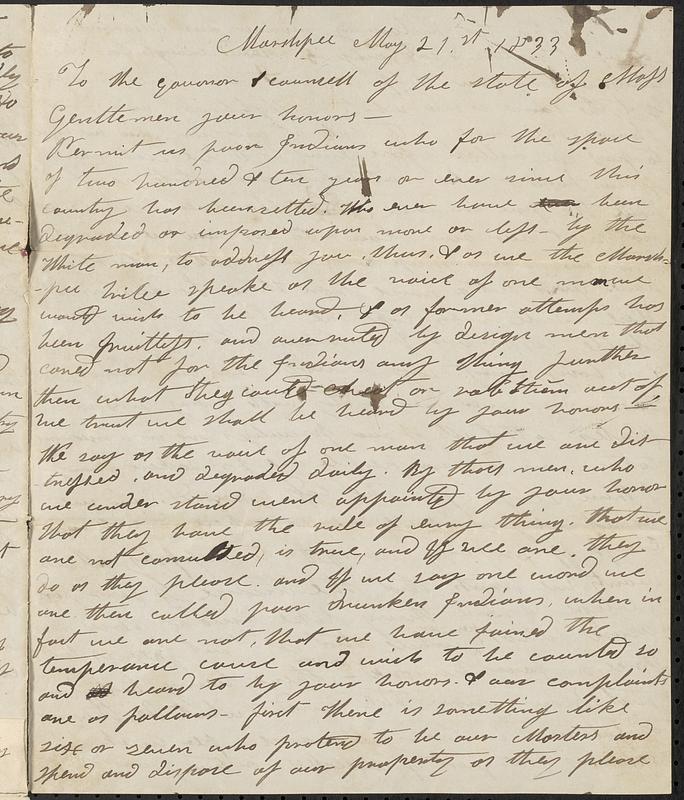 Marshpee May 21.st 1833
To the govonor & counsell of the state of Mass
Gentlemen your honors—
Permit us poor Indians who for the space
of two hundred & ten years or ever since this
country has been setled. Who ever have been
degraded or imposed upon more or less by the
White man, to address you, thus, & as we the Marsh-
-pee tribe speake as the voice of one man we
want wish to be heard, & as former attemps has
been fruitless, and over ruled by design men that
cared not for the Indians any thing further
then what they could cheat or rob them out of,
we trust we shall be heard by your honors—
We say as the voice of one man that we are dis-
-tressed, and degraded daily. By those men, who
we under stand were appointed by your honor
that they have the rule of every thing. that we
are not consulted, is true, and If wee are, they
do as they please. and If we say one word we
are then called poor drunken Indians, when in
fact we are not, that we have joined the
temperance cause and wish to be counted so
and heard to by your honors. & our complaints
are as follows— first there is something like
six or seven who pretend to be our Masters and
spend and dispose of our property as they please